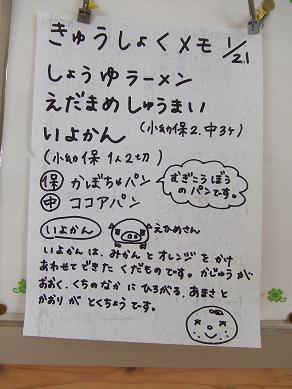 きゅうしょくメモ 1/21
しょうゆラーメン
えだまめしゅうまい
いよかん (小幼保2、中3ケ)
(小幼保 1人2切)
保 かぼちゃパン
中 ココアパン
むぎこうぼう
のパンです。
いよかん えひめさん
いよかんは、みかんとオレンジをかけ
あわせてできたくだものです。かじゅうが
おおく、くちのなかにひろがる、あまさと
かおりがとくちょうです。